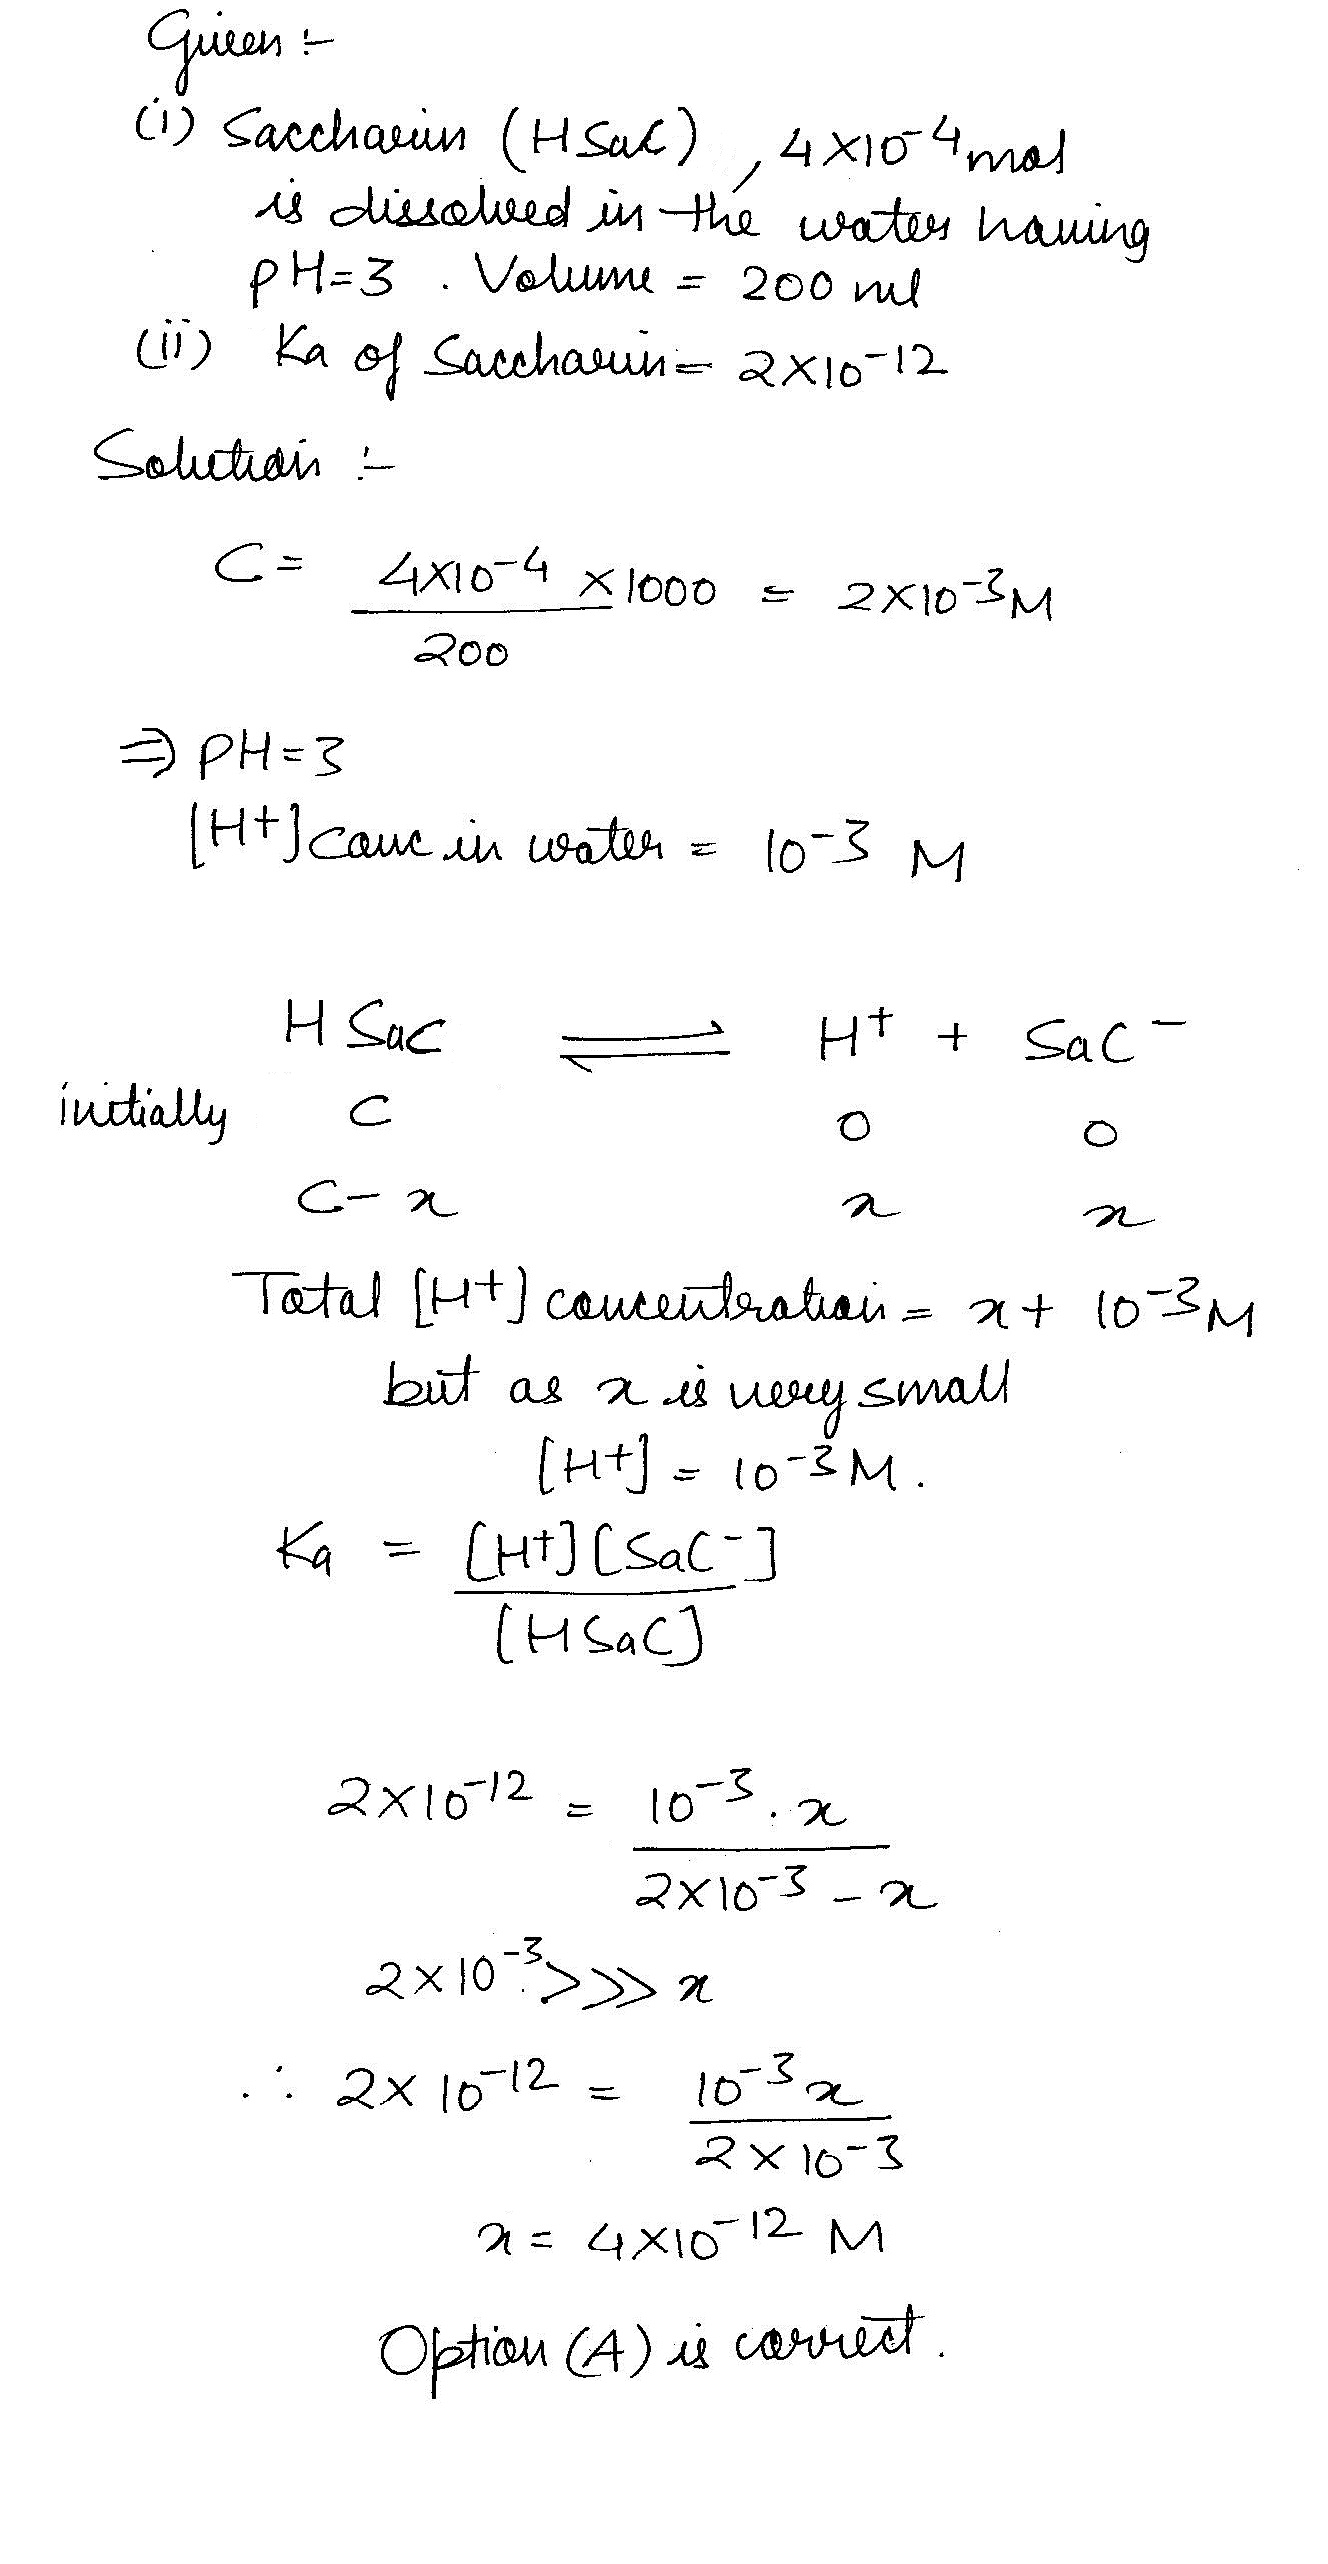 Given :-
(i) Saccharin (HSaC), 4×10⁻⁴ mol
is dissolved in the water having
pH=3 . Volume = 200 ml
(ii) Ka of Saccharin = 2×10⁻¹²
Solution :-
C = 4×10⁻⁴/200 × 1000 = 2×10⁻³ M
⇒ PH=3
[H+] conc in water = 10⁻³ M
HSaC ⇌ H⁺ + SaC⁻
initially C 0 0
C-x x x
Total [H+] concentration = x + 10⁻³ M
but as x is very small
[H+] = 10⁻³ M.
Ka = [H+][SaC⁻]/[HSaC]
2×10⁻¹² = 10⁻³.x/2×10⁻³ - x
2×10⁻³ >>> x
∴ 2×10⁻¹² = 10⁻³x/2×10⁻³
x = 4×10⁻¹² M
Option (A) is correct.